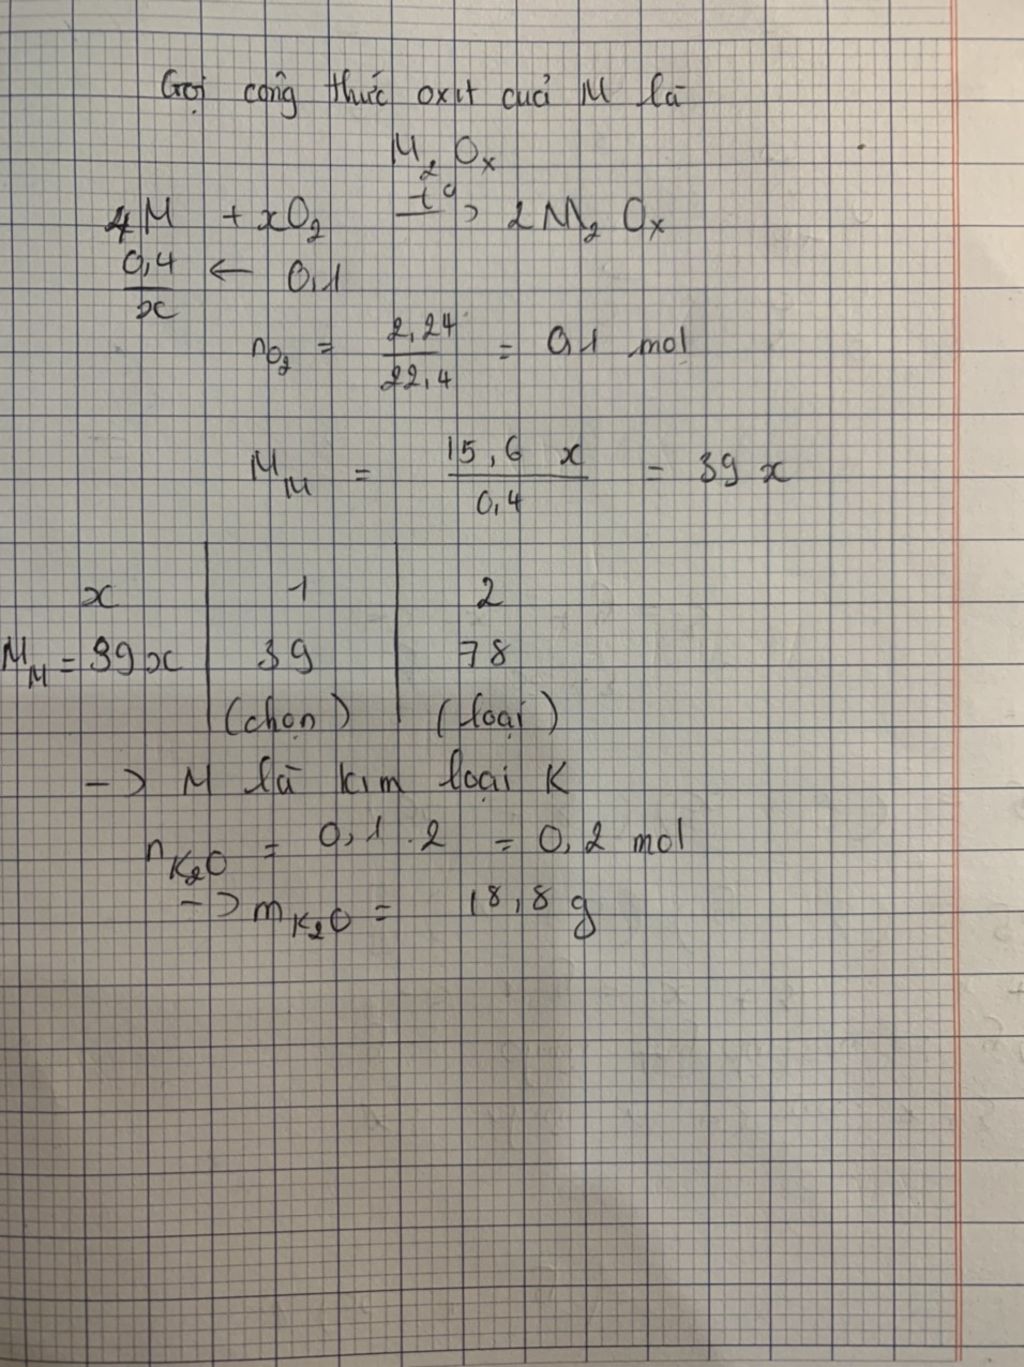 Gọi công thức oxit của M là
M₂Oₓ
4M + xO₂ —t°→ 2M₂Oₓ
0,4/x ← 0,1
nO₂ = 2,24/22,4 = 0,1 mol
M_M = 15,6 x/0,4 = 39 x
x | 1 | 2
M_M = 39x | 39 | 78
(chọn) | (loại)
-> M là kim loại K
nK₂O = 0,1 . 2 = 0,2 mol
-> mK₂O = 18,8 g